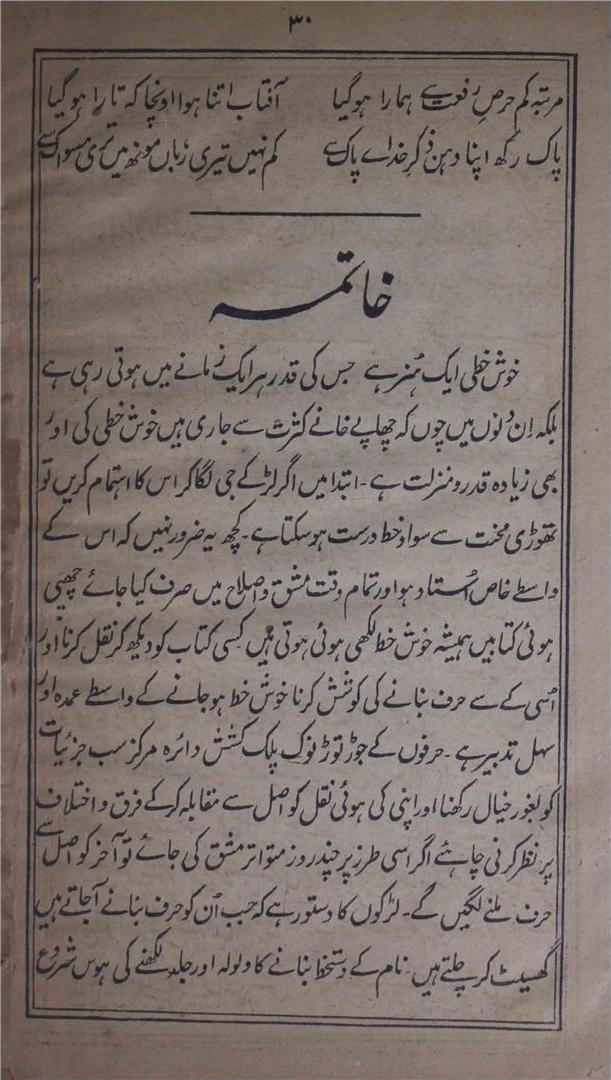 ۳۰
مرتبہ کم حرصِ رفعت سے ہمارا ہوگیا آفتاب اتنا ہوا اونچا کہ تارا ہوگیا
پاک رکھ اپنا دہن ذکرِ خداے پاک سے کم نہیں تیری زباں مونھ میں تری مسواک سے
خاتمہ
خوش خطی ایک ہُنر ہے جس کی قدر ہر ایک زمانے میں ہوتی رہی ہے
بلکہ اِن دنوں میں چوں کہ چھاپے خانے کثرت سے جاری ہیں خوش خطی کی اور
بھی زیادہ قدر و منزلت ہے۔ ابتدا میں اگر لڑکے جی لگا کر اس کا اہتمام کریں تو
تھوڑی محنت سے سوادِ خط درست ہو سکتا ہے۔ کچھ یہ ضرور نہیں کہ اس کے
واسطے خاص اُستاد ہو اور تمام وقت مشق و اصلاح میں صرف کیا جائے چھپی
ہوئی کتابیں ہمیشہ خوش خط لکھی ہوئی ہوتی ہیں کسی کتاب کو دیکھ کر نقل کرنا اور
اُسی کے سے حرف بنانے کی کوشش کرنا خوش خط ہو جانے کے واسطے عمدہ اور
سہل تدبیر ہے۔ حرفوں کے جوڑ توڑ نوک پلک کشش دائرہ مرکز سب جزئیات
کو بغور خیال رکھنا اور اپنی کی ہوئی نقل کو اصل سے مقابلہ کر کے فرق و اختلاف
پر نظر کرنی چاہئے اگر اسی طرز پر چند روز متواتر مشق کی جائے تو آخر کو اصل سے
حرف ملنے لگیں گے۔ لڑکوں کا دستور ہے کہ جب اُن کو حرف بنانے آجاتے ہیں
گھسیٹ کر چلتے ہیں۔ نام کے دستخط بنانے کا ولولہ اور جلد لکھنے کی ہوس شروع